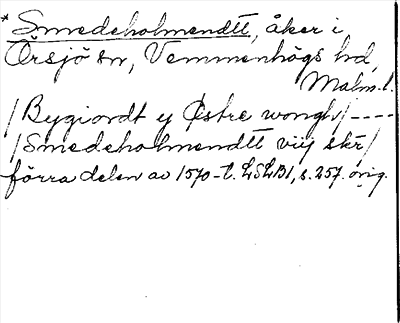 * Smedeholmendtt, åker i
Örsjö sn, Vemmenhögs hd,
Malm. l.
/Bygiordt y Østre wongh/----
/Smedeholmendtt viij skr/
förra delen av 1570-t. LSLB1, s. 257. orig.